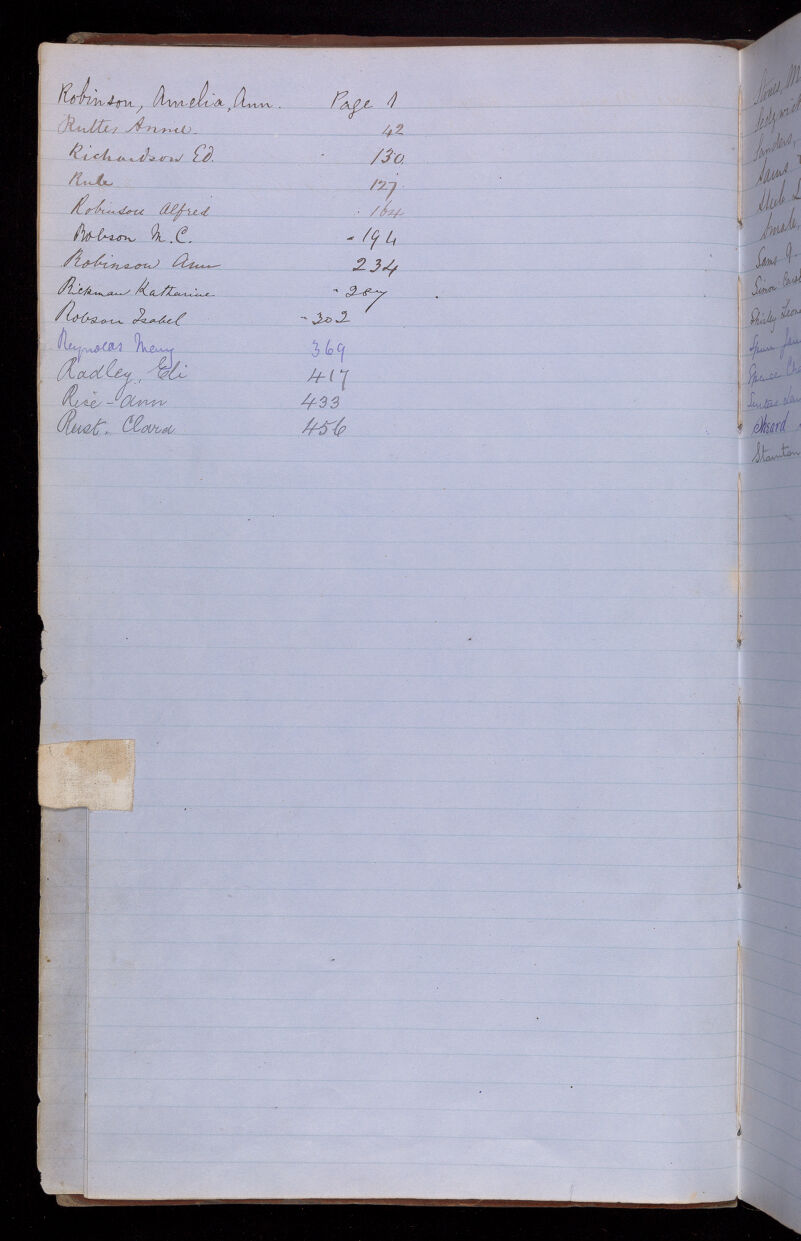 Robinson, Amelia, Ann. Page 1
Rutter Annie. 42
Richardson Ed. 130.
Rule 127.
Robinson Alfred 164
Robson M. C. - 194
Robinson Ann 234
Rickman Katharine - 287
Robson Isabel - 302
Reynolds Mercy 369
Radley, Eli 417
Rice - Ann 433
Rust. Clara 456
Sanders,
Sams J.
Shirley
Spence
Stanton